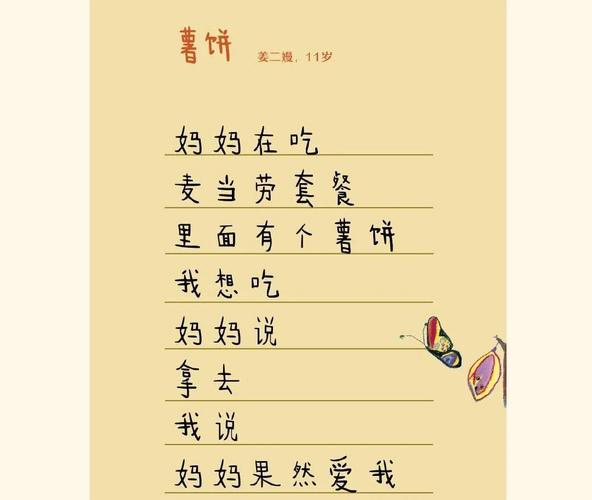 薯饼 姜二嫚，11岁
妈妈在吃
麦当劳套餐
里面有个薯饼
我想吃
妈妈说
拿去
我说
妈妈果然爱我